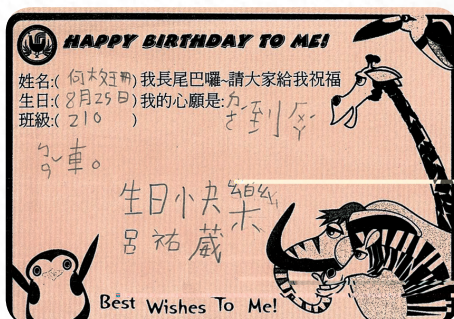 HAPPY BIRTHDAY TO ME!
姓名:(何) 我長尾巴囉~請大家給我祝福
生日:(8月25日) 我的心願是:ㄉㄜˊ到
班級:(210)
車。
生日小夬樂
呂祐葳
Best Wishes To Me!